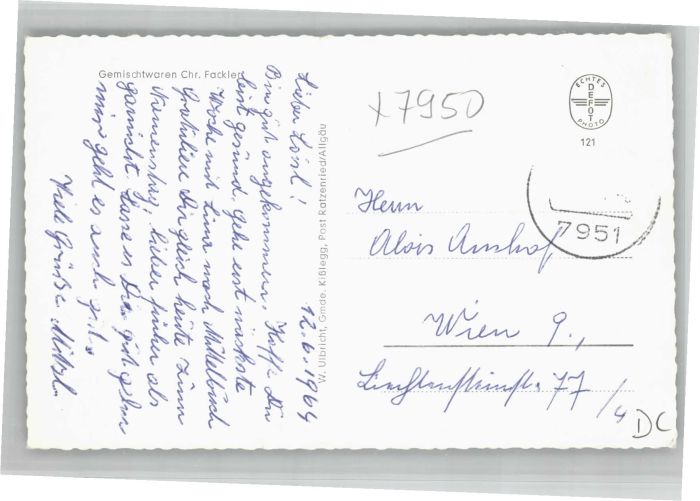 Gemischtwaren Chr. Fackler
12.6.1964
Lieber Loisl!
Bin gut angekommen. Hoffe Du
bist gesund. Gehe erst nächste
Woche mit nach
Gratuliere Dir gleich heute zum
Namenstag, lieber früher als
garnicht. Lasse es Dir gut gehen
mir geht es auch gut.
Viele Grüße
W. Ulbricht, Gmde. Kißlegg, Post Ratzenried/Allgäu
x7950
ECHTES
DEFOT
PHOTO
121
7951
Herrn
Alois
Wien 9.,
Liechtensteinstr. 77
/4
DC